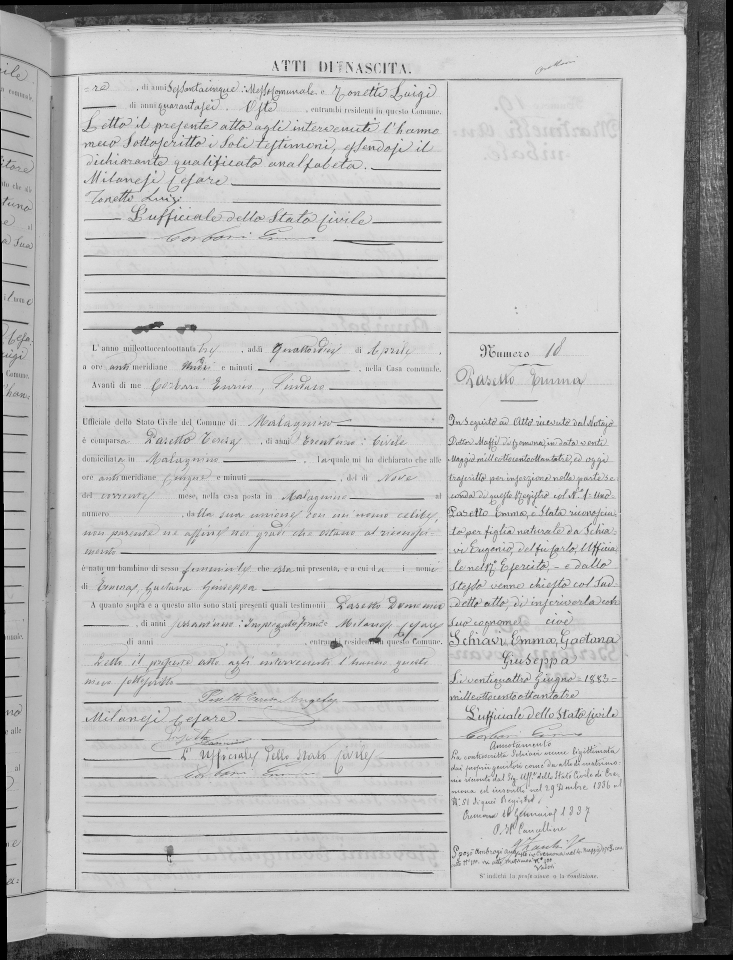 ATTI DI NASCITA.
re, di anni Settantacinque: Messo Comunale e Tonetti Luigi
di anni quarantasei, Oste, entrambi residenti in questo Comune.
Letto il presente atto agli intervenuti l'hanno
meco Sottoscritto i Soli testimoni, essendosi il
dichiarante qualificato analfabeta.
Milanesi Cesare
Tonetti Luigi
L'ufficiale dello Stato Civile
Corbari
L'anno milleottocentottantatre, addi Quattordici di Aprile,
a ore anti meridiane undici e minuti, nella Casa comunale.
Avanti di me Corbari Enrico, Sindaco
Ufficiale dello Stato Civile del Comune di Malagnino
è comparsa Pasetto Teresa, di anni Trentuno: Civile
domiciliata in Malagnino, la quale mi ha dichiarato che alle
ore anti meridiane cinque e minuti, del dì Nove
del corrente mese, nella casa posta in Malagnino al
numero, dalla sua unione con un uomo celibe,
non parente ne affine nei gradi che ostano al riconosci-
mento
è nato un bambino di sesso femminile che essa mi presenta, e a cui dà i nomi
di Emma, Gaetana Giuseppa
A quanto sopra e a questo atto sono stati presenti quali testimoni Pasetto
di anni, Milanesi Cesare
di anni, entrambi residenti in questo Comune.
Letto il presente atto agli intervenuti l'hanno questi
meco sottoscritto
Milanesi Cesare
L'Ufficiale dello Stato Civile
Corbari
Numero 18
Pasetto Emma
In Seguito ad Atto ricevuto dal Notajo
Dottor Maffi di Cremona in data venti
Maggio milleottocentoottantatre, ed oggi
trascritto per inserzione nella parte se-
conda di questo Registro col N.° 1
Pasetto Emma, è Stata riconosciu-
to per figlia naturale da Schia-
vi Eugenio, del fu Carlo, Ufficia-
le nel R.° Esercito, e dallo
Stesso venne chiesto col Sud-
detto atto di inferiverla col
suo cognome cioè
Schiavi, Emma, Gaetana
Giuseppa
Li ventiquattro Giugno - 1883 -
milleottocentoottantatre
L'ufficiale dello Stato Civile
Corbari
Annotamento
La controscritta Schiavi venne legittimata
dai proprii genitori come da atto di matrimo-
nio ricevuto dal Sig. Uff. dello Stato Civile di Cre-
mona ed inscritto nel 29 Dicembre 1886 al
N.° 51 di quei Registri.
Cremona Gennaio 1887
Il V. Cancelliere
S'indichi la professione o la condizione.